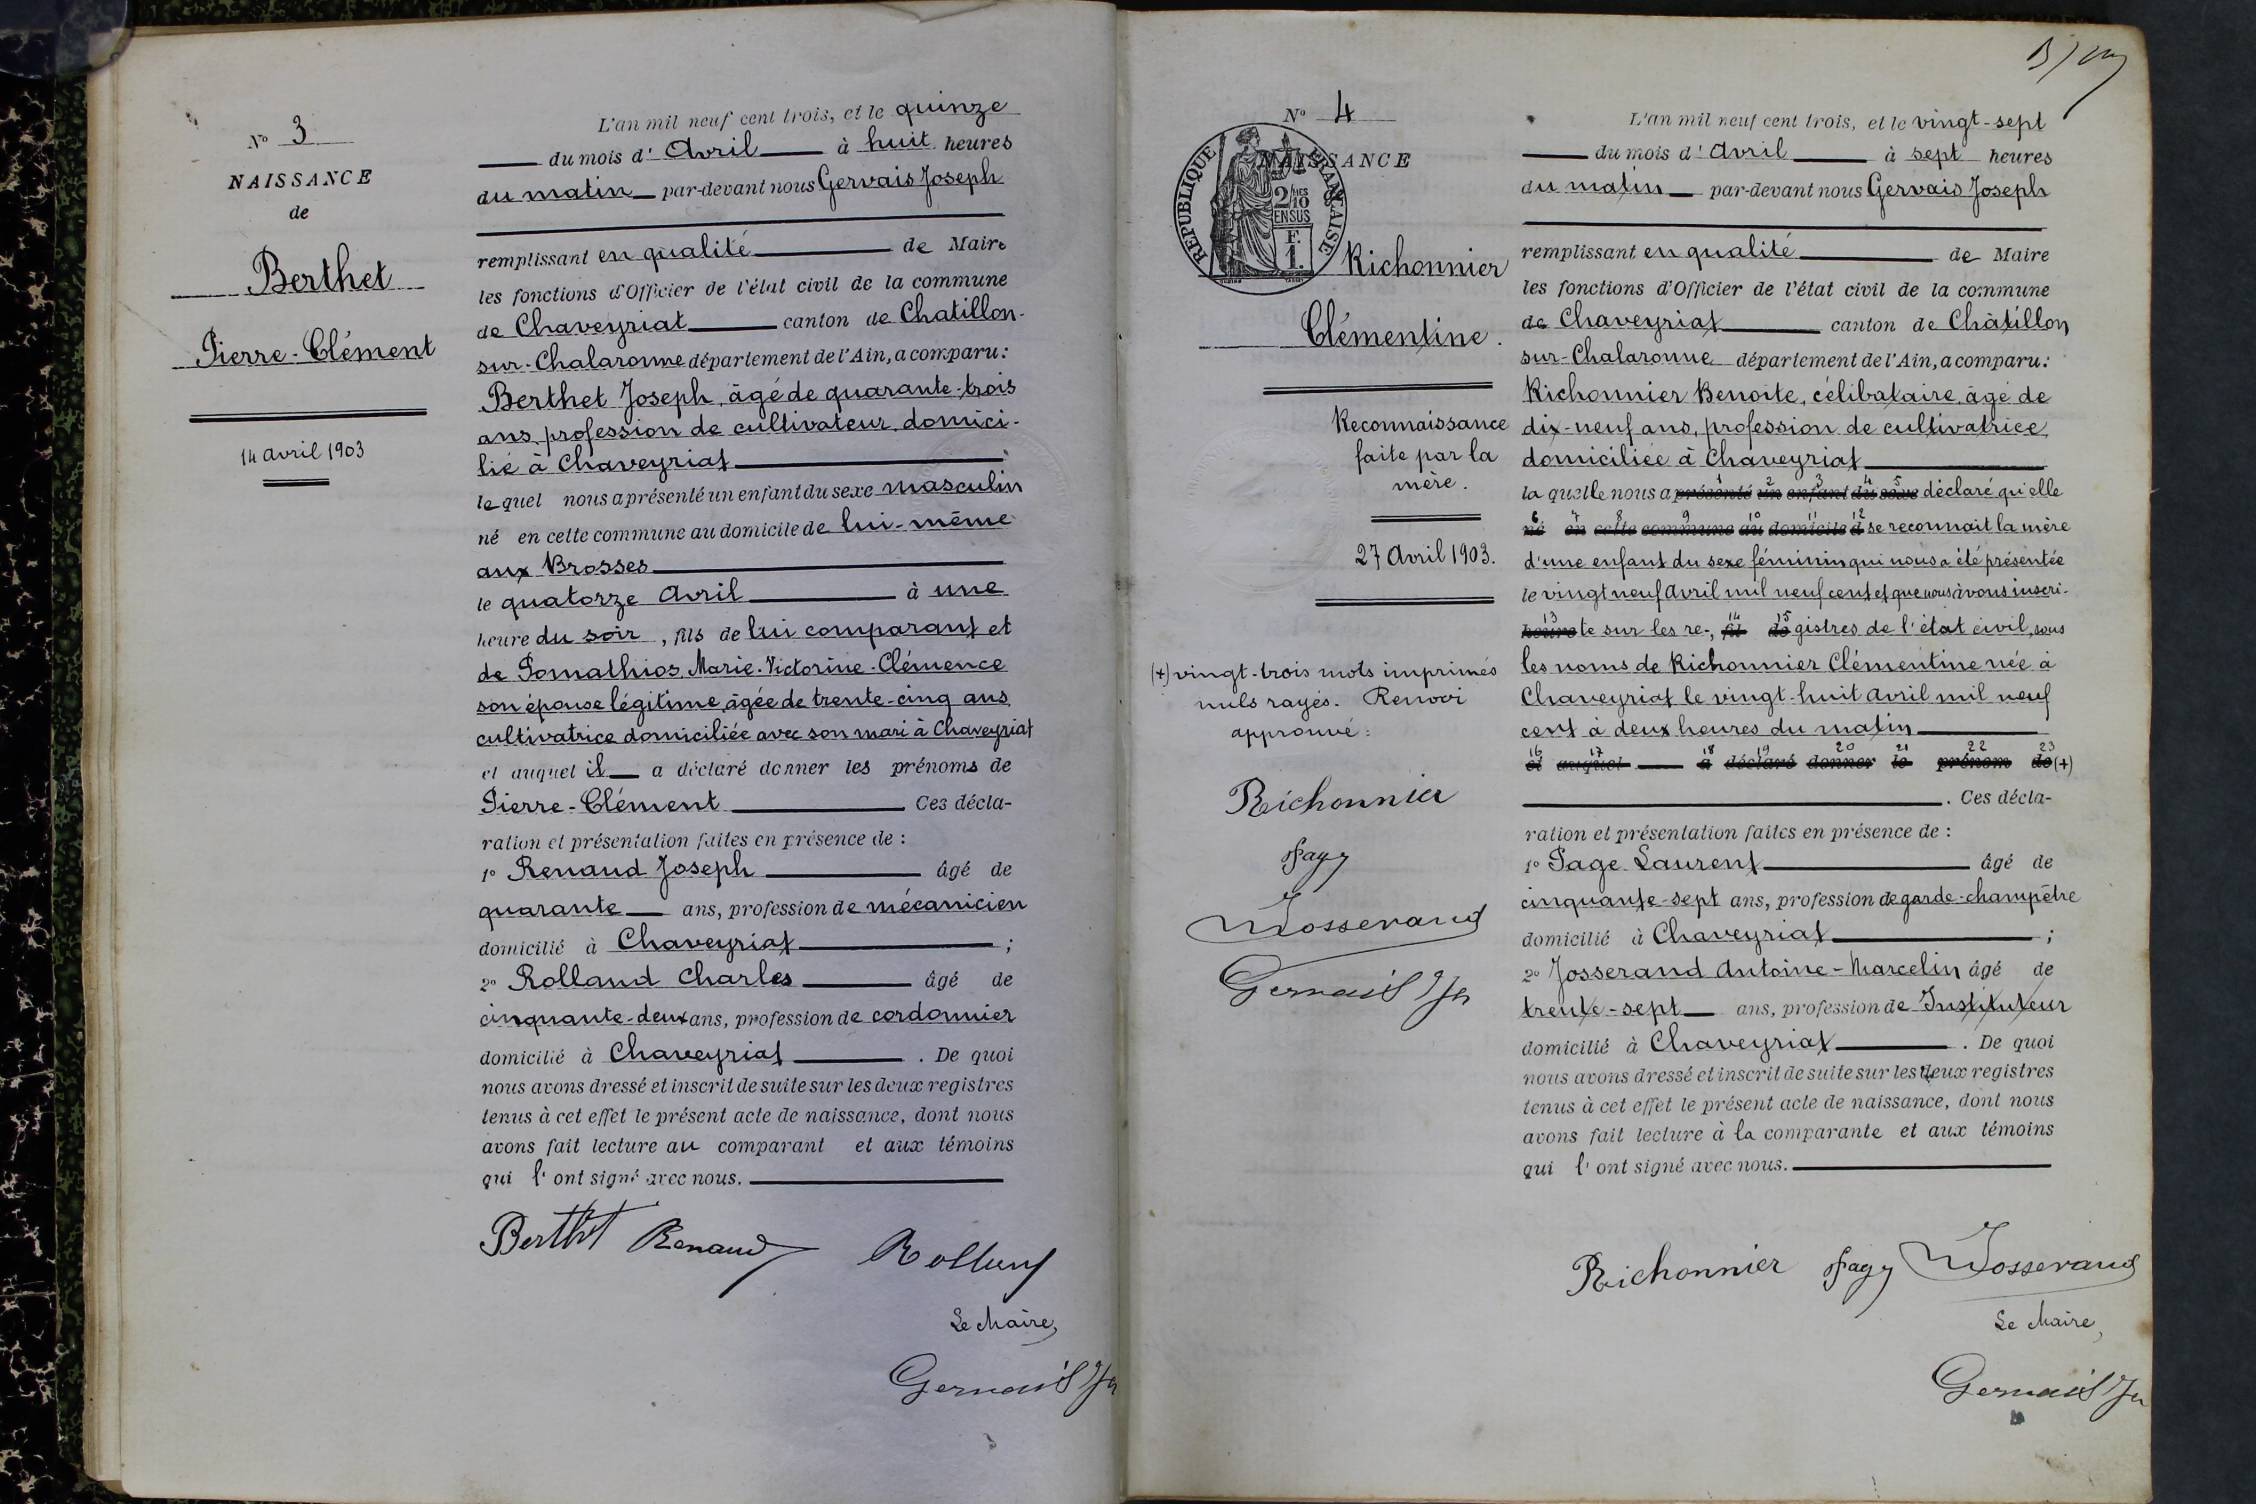 N° 3
NAISSANCE
de
Berthet
Pierre-Clément
14 avril 1903
L'an mil neuf cent trois, et le quinze
du mois d'Avril à huit heures
du matin par-devant nous Gervais Joseph
remplissant en qualité de Maire
les fonctions d'Officier de l'état civil de la commune
de Chaveyriat canton de Chatillon-
sur-Chalaronne département de l'Ain, a comparu:
Berthet Joseph, âgé de quarante-trois
ans, profession de cultivateur, domici-
lié à Chaveyriat
lequel nous a présenté un enfant du sexe masculin
né en cette commune au domicile de lui-même
aux Brosses
le quatorze Avril à une
heure du soir, fils de lui comparant et
de Pomathios, Marie-Victorine-Clémence
son épouse légitime, âgée de trente-cinq ans
cultivatrice domiciliée avec son mari à Chaveyriat
et auquel il a déclaré donner les prénoms de
Pierre-Clément Ces décla-
ration et présentation faites en présence de :
1° Renaud Joseph âgé de
quarante ans, profession de mécanicien
domicilié à Chaveyriat ;
2° Rolland Charles âgé de
cinquante-deux ans, profession de cordonnier
domicilié à Chaveyriat . De quoi
nous avons dressé et inscrit de suite sur les deux registres
tenus à cet effet le présent acte de naissance, dont nous
avons fait lecture au comparant et aux témoins
qui l'ont signé avec nous.
Berthet Renaud Rolland
Le Maire,
Gervais Jh
N° 4
NAISSANCE
REPUBLIQUE FRANÇAISE
2/10
EN SUS
F.
1.
Richonnier
Clémentine.
Reconnaissance
faite par la
mère.
27 Avril 1903.
(+) vingt-trois mots imprimés
nuls rayés. Renvoi
approuvé :
Richonnier
Page
Josserand
Gervais Jh
L'an mil neuf cent trois, et le vingt-sept
du mois d'Avril à sept heures
du matin par-devant nous Gervais Joseph
remplissant en qualité de Maire
les fonctions d'Officier de l'état civil de la commune
de Chaveyriat canton de Châtillon
sur-Chalaronne département de l'Ain, a comparu:
Richonnier Benoite, célibataire, âgé de
dix-neuf ans, profession de cultivatrice,
domiciliée à Chaveyriat
1 2 3 4 5
laquelle nous a présenté un enfant du sexe déclaré qu'elle
6 7 8 9 10 11 12
né en cette commune au domicile d se reconnait la mère
d'une enfant du sexe féminin qui nous a été présentée
le vingt neuf Avril mil neuf cent et que nous avons inscri-
13 14 15
heure te sur les re-, fil de gistres de l'état civil, sous
les noms de Richonnier Clémentine née à
Chaveyriat le vingt-huit avril mil neuf
cent à deux heures du matin
16 17 18 19 20 21 22 23
et auquel a déclaré donner le prénom de (+)
. Ces décla-
ration et présentation faites en présence de :
1° Page Laurent âgé de
cinquante-sept ans, profession de garde-champêtre
domicilié à Chaveyriat ;
2° Josserand Antoine-Marcelin âgé de
trente-sept ans, profession de Instituteur
domicilié à Chaveyriat . De quoi
nous avons dressé et inscrit de suite sur les deux registres
tenus à cet effet le présent acte de naissance, dont nous
avons fait lecture à la comparante et aux témoins
qui l'ont signé avec nous.
Richonnier Page Josserand
Le Maire,
Gervais Jh